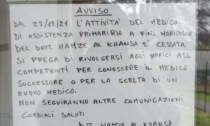 AVVISO
DAL 27/12/21 L'ATTIVITA' DEL MEDICO
DI ASSISTENZA PRIMARIA A PINO HORNAGO
DEL DOTT. HAMZE AL KHANSA E' CESSATA
SI PREGA DI RIVOLGERSI AGLI UFFICI ASL
COMPETENTI PER CONOSCERE IL MEDICO
SUCCESSORE O PER LA SCELTA DI UN
NUOVO MEDICO.
NON SEGUIRANNO ALTRE COMUNICAZIONI
CORDIALI SALUTI
HAMZE AL KHANSA